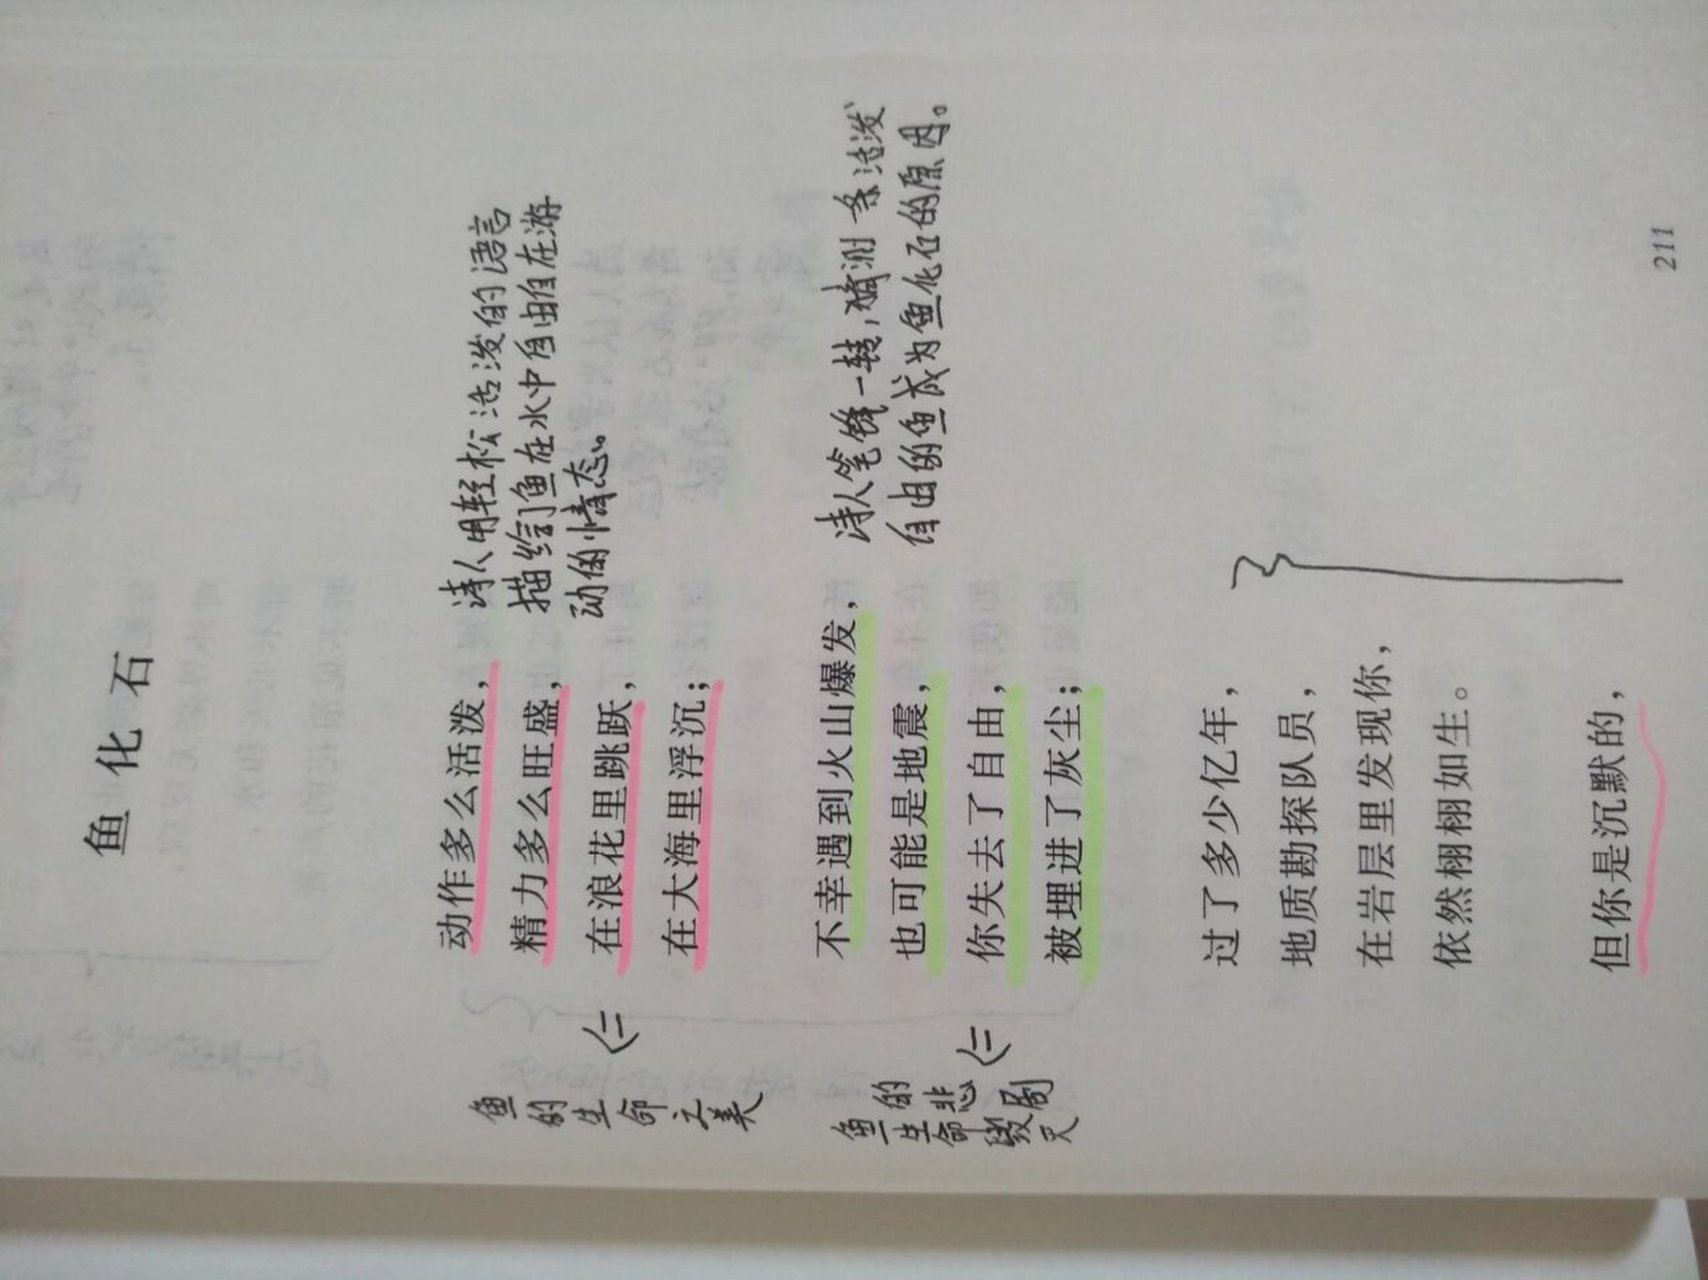 鱼化石
动作多么活泼，
精力多么旺盛，
在浪花里跳跃，
在大海里浮沉；
诗人用轻松活泼的语言
描绘了鱼在水中自由自在游
动的情态。
鱼的生命之美
不幸遇到火山爆发，
也可能是地震，
你失去了自由，
被埋进了灰尘；
诗人笔锋一转，猜测一条活泼
自由的鱼成为鱼化石的原因。
鱼生命毁灭
的悲剧
过了多少亿年，
地质勘探队员，
在岩层里发现你，
依然栩栩如生。
但你是沉默的，
211